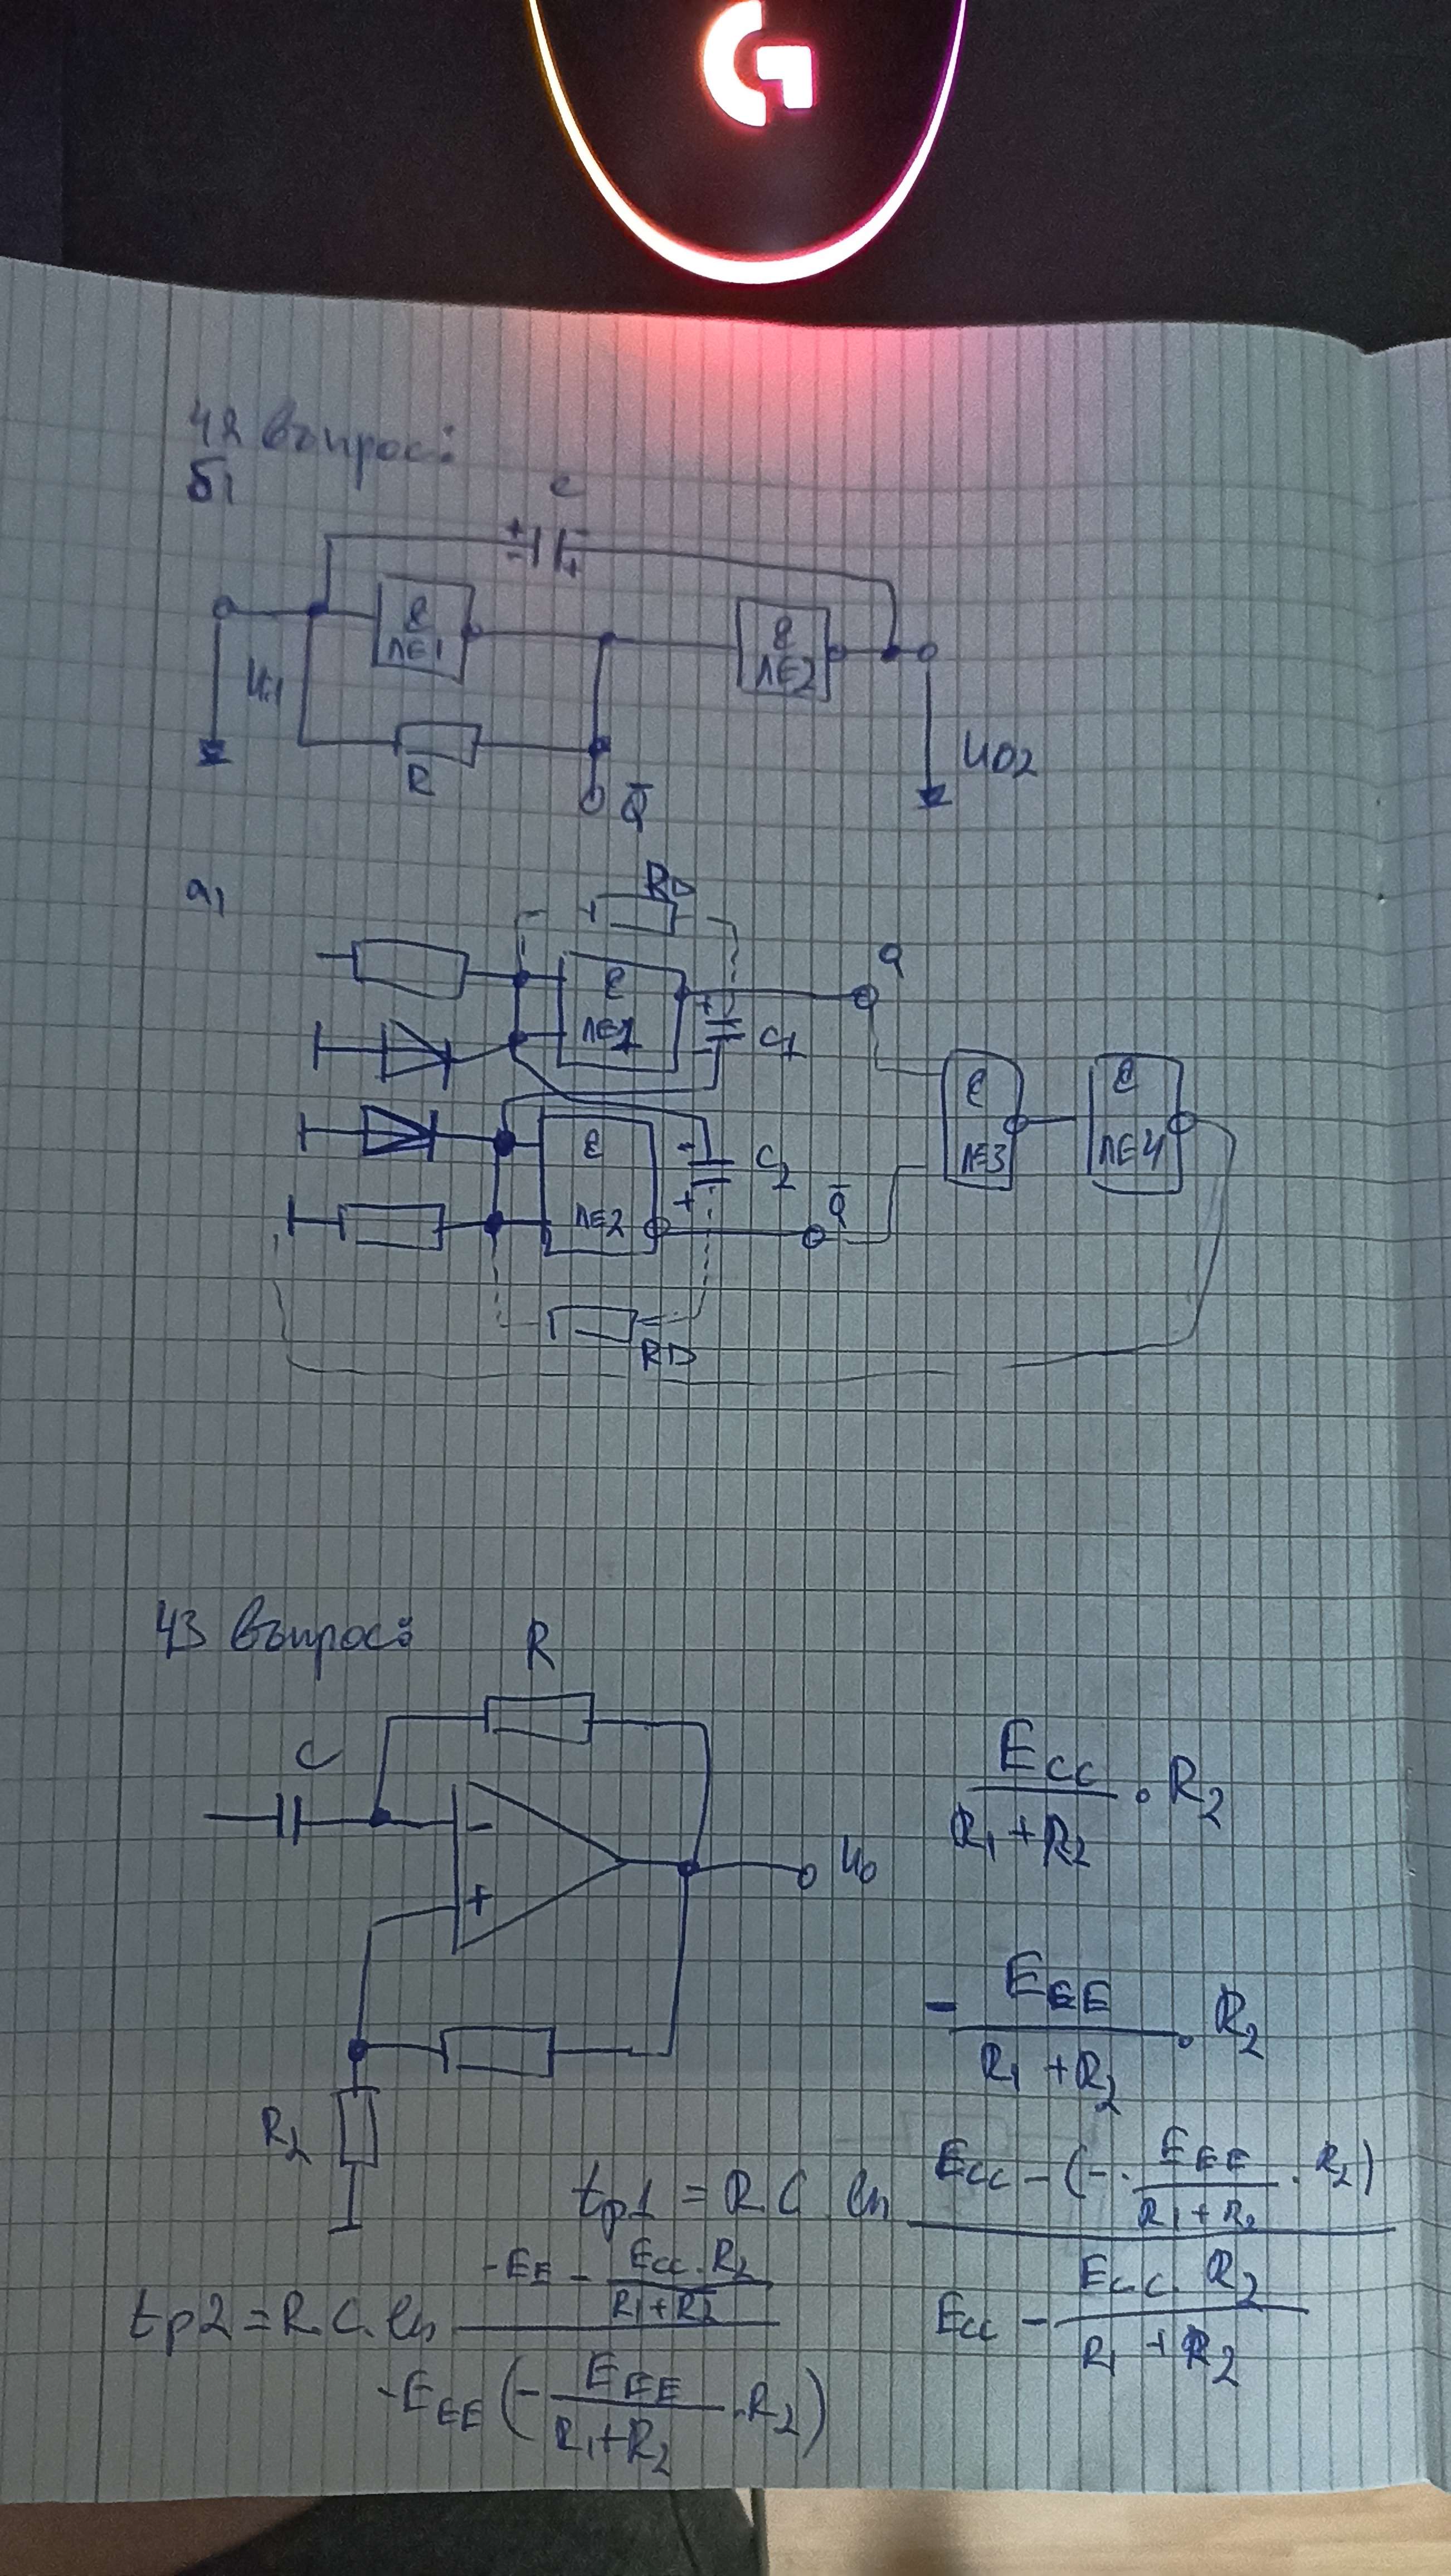 42 въпрос:
б)
C
+ -
- +
&
ЛЕ1
&
ЛЕ2
R
Q̅
UO2
а)
RD
&
ЛЕ1
+
C1
Q
&
ЛЕ2
-
C2
+
Q̅
&
ЛЕ3
&
ЛЕ4
RD
43 въпрос:
R
C
-
+
U0
R2
Ecc / (R1 + R2) · R2
- EEE / (R1 + R2) · R2
tp1 = R C ln (Ecc - (- · EEE / (R1 + R2) · R2)) / (Ecc - Ecc · R2 / (R1 + R2))
tp2 = R.C. ln (-EE - Ecc · R2 / (R1 + R2)) / (-EEE (- EEE / (R1 + R2) · R2))